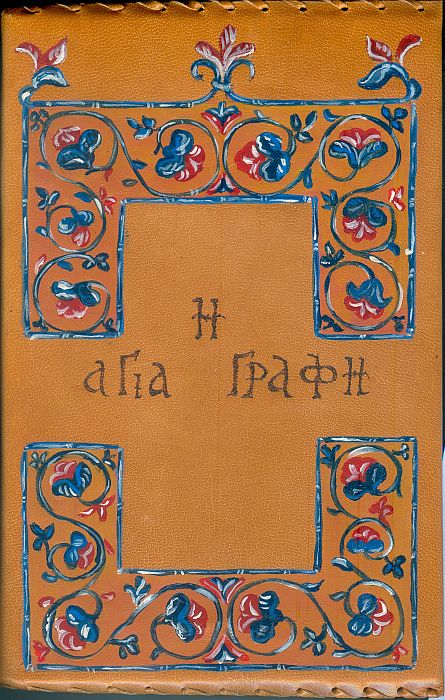 Η
αΓια ΓΡαΦΗ